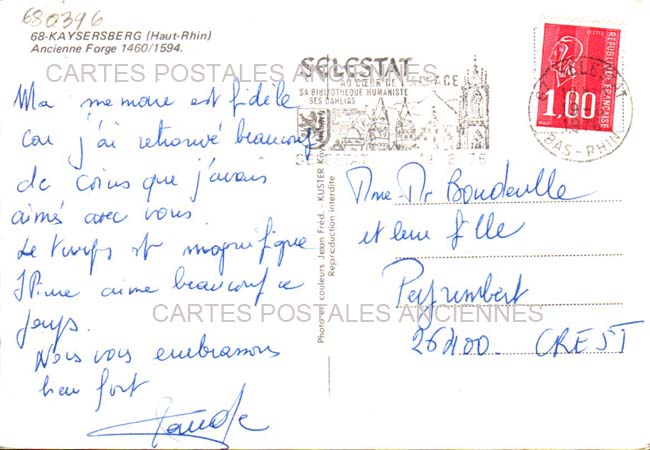 680396
68-KAYSERSBERG (Haut-Rhin)
Ancienne Forge 1460/1594.
CARTES POSTALES ANCIENNES
Ma memoire est fidèle
car j'ai retrouvé beaucoup
de coins que j'avais
aimés avec vous.
Le temps est magnifique
aime beaucoup ce
pays.
Nous vous embrassons
bien fort
SELESTAT
AU CŒUR DE L'ALSACE
SA BIBLIOTHEQUE HUMANISTE
SES DAHLIAS
REPUBLIQUE FRANÇAISE
POSTES
1.00
67 SELESTAT
BAS-RHIN
Photo et couleurs Jean Fréd. - KUSTER
Reproduction interdite
Mme-Mr Bondeville
et leur fille
Peyrambert
26400 CREST
CARTES POSTALES ANCIENNES